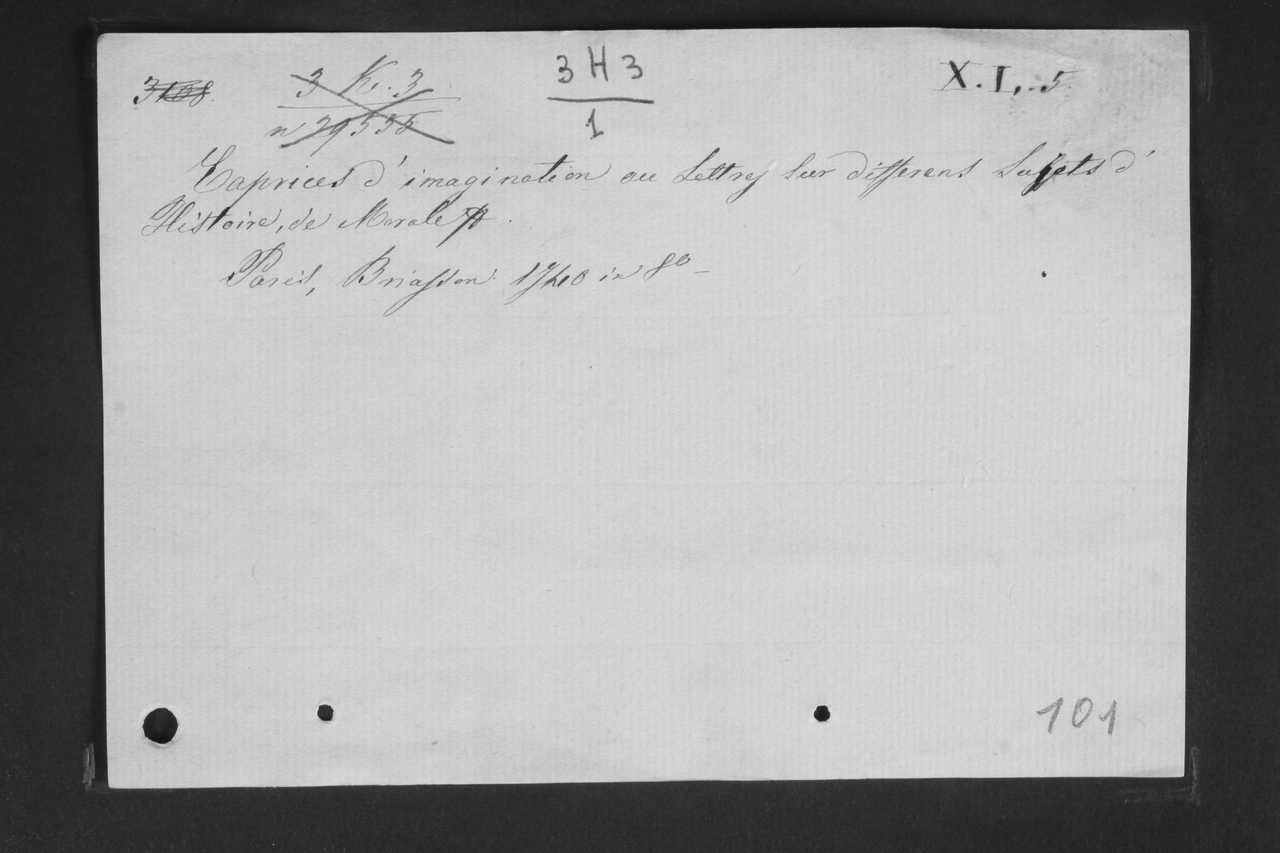 3168. 3 K. 3 3 H 3 X. I, 5
n 29535 1
Caprices d' imagination ou Lettres sur differens Sujets d'
Histoire, de Morale &.
Paris, Briasson 1740 in 8º
101